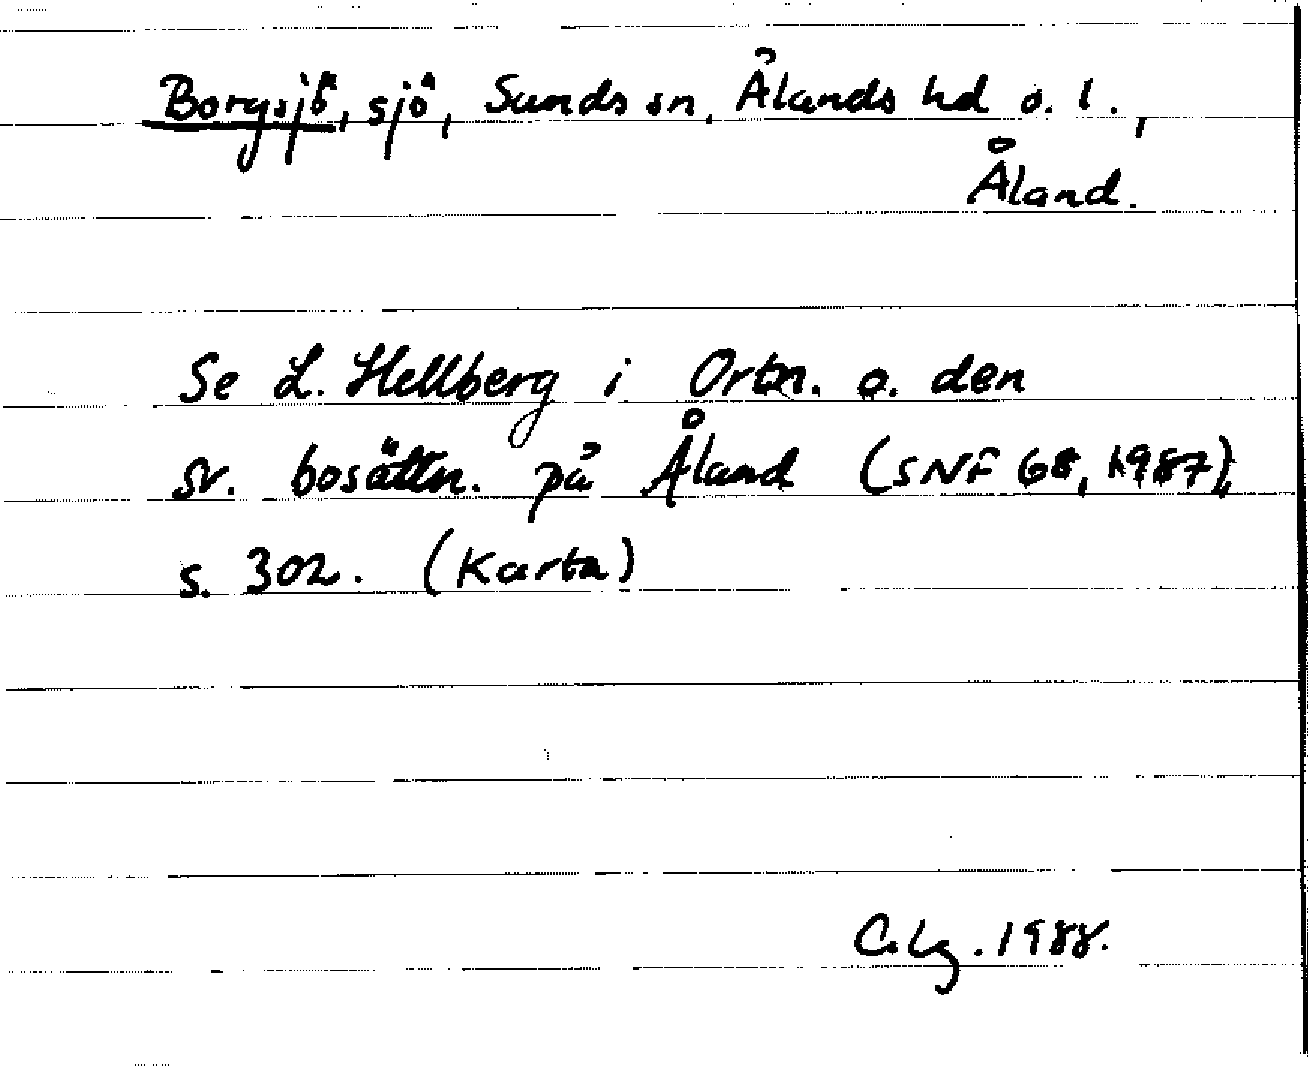 Borgsjö, sjö, Sunds sn, Ålands hd o. l.,
Åland.
Se L. Hellberg i Ortn. o. den
sv. bosättn. på Åland (SNF 68, 1987),
s. 302. (Karta)
C. Lg. 1988.